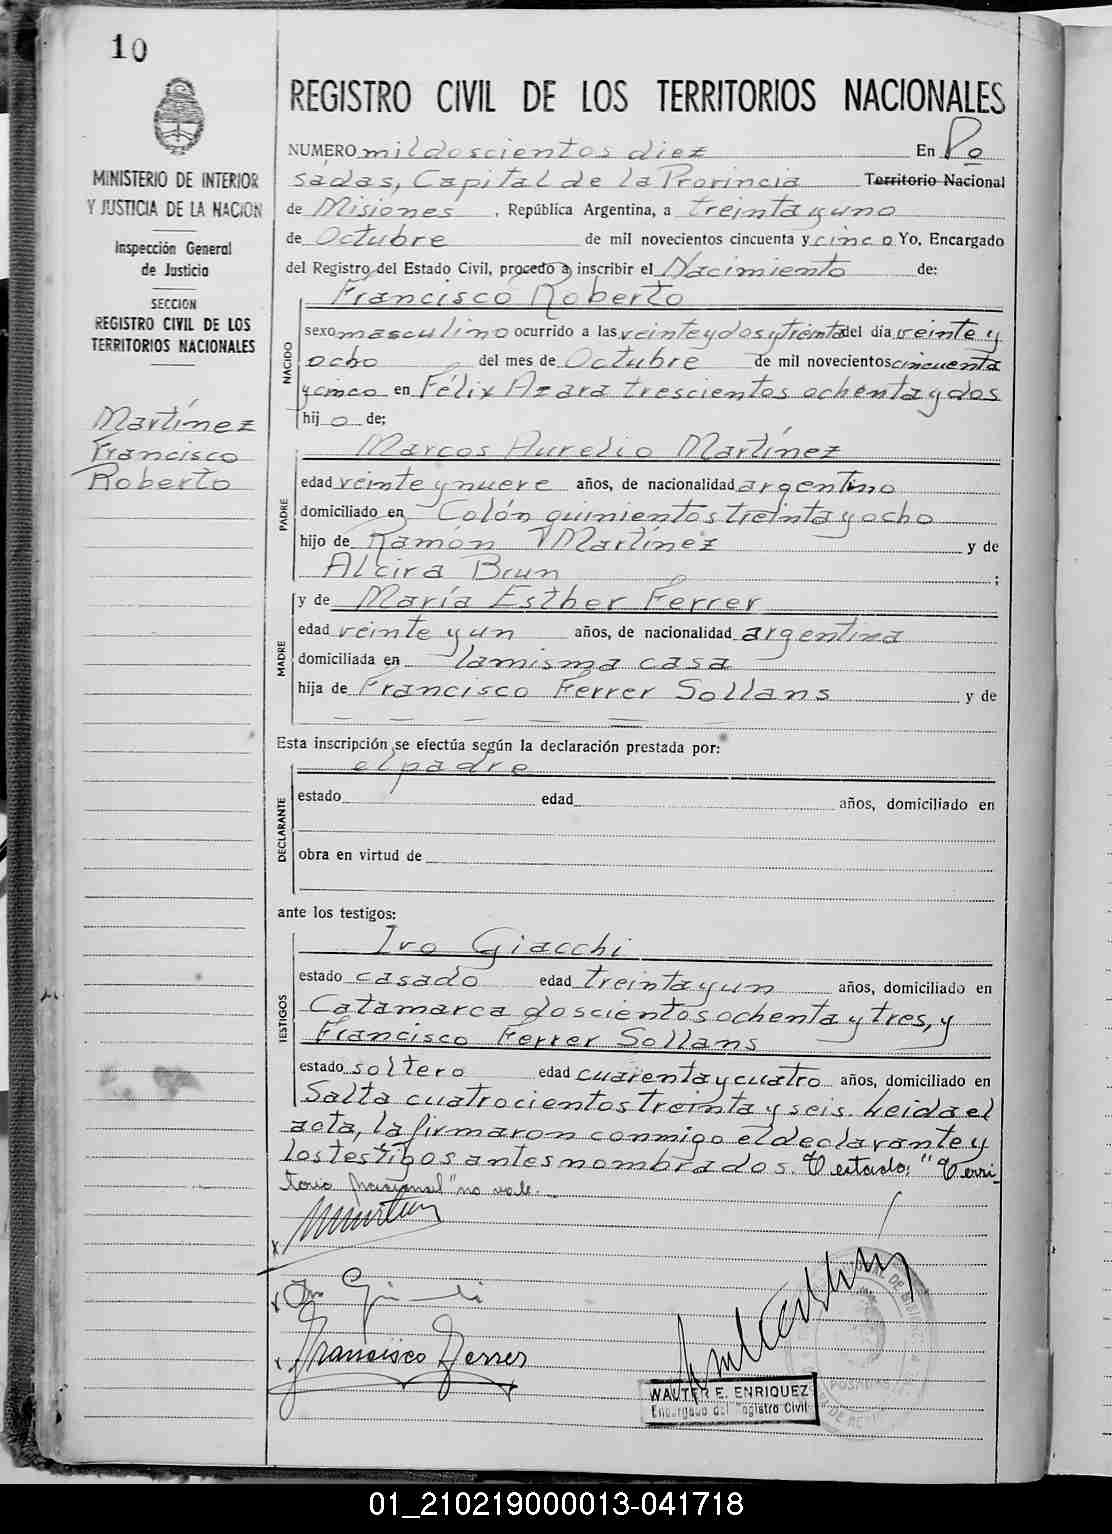 10
MINISTERIO DE INTERIOR
Y JUSTICIA DE LA NACION
Inspección General
de Justicia
SECCION
REGISTRO CIVIL DE LOS
TERRITORIOS NACIONALES
Martínez
Francisco
Roberto
REGISTRO CIVIL DE LOS TERRITORIOS NACIONALES
NUMERO mil doscientos diez En Po
sadas, Capital de la Provincia Territorio Nacional
de Misiones, República Argentina, a treinta y uno
de Octubre de mil novecientos cincuenta y cinco Yo, Encargado
del Registro del Estado Civil, procedo a inscribir el Nacimiento de:
Francisco Roberto
NACIDO
sexo masculino ocurrido a las veinte y dos y treinta del día veinte y
ocho del mes de Octubre de mil novecientos cincuenta
y cinco en Félix Azara trescientos ochenta y dos
hijo de;
Marcos Aurelio Martínez
PADRE
edad veinte y nueve años, de nacionalidad argentino
domiciliado en Colón quinientos treinta y ocho
hijo de Ramón Martínez y de
Alcira Brun ;
y de María Esther Ferrer
MADRE
edad veinte y un años, de nacionalidad argentina
domiciliada en la misma casa
hija de Francisco Ferrer Sollans y de
Esta inscripción se efectúa según la declaración prestada por:
el padre
DECLARANTE
estado edad años, domiciliado en
obra en virtud de
ante los testigos:
Ivo Giacchi
TESTIGOS
estado casado edad treinta y un años, domiciliado en
Catamarca doscientos ochenta y tres, y
Francisco Ferrer Sollans
estado soltero edad cuarenta y cuatro años, domiciliado en
Salta cuatrocientos treinta y seis. Leida el
acta, la firmaron conmigo el declarante y
los testigos antes nombrados. Testado: "Terri_
torio Nacional" no vale.
Francisco Ferrer
WALTER E. ENRIQUEZ
Encargado del Registro Civil
POSADAS
01_210219000013-041718